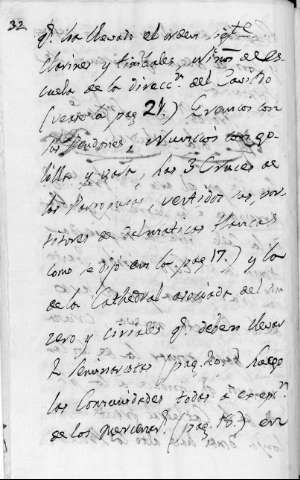 32
q.e ha llevado el orden sig.te
Clarines y timbales, Niños de es
cuela de la Direcc.n del Cavildo
(vease a pag 24.) Gremios con
sus Pendones, Ministros con go
lilla y vara, las 3 Cruces de
las Parroquias, vertidos los por
tadores de dalmaticas blancas
como se dijo en la pag 17.) y la
de la Cathedral asociada del
y ciriales q.e deben llevar
2 (pag. 20.) luego
las Comunidades todas a excep.n
de los Mercenar.s (pag. 18.) en